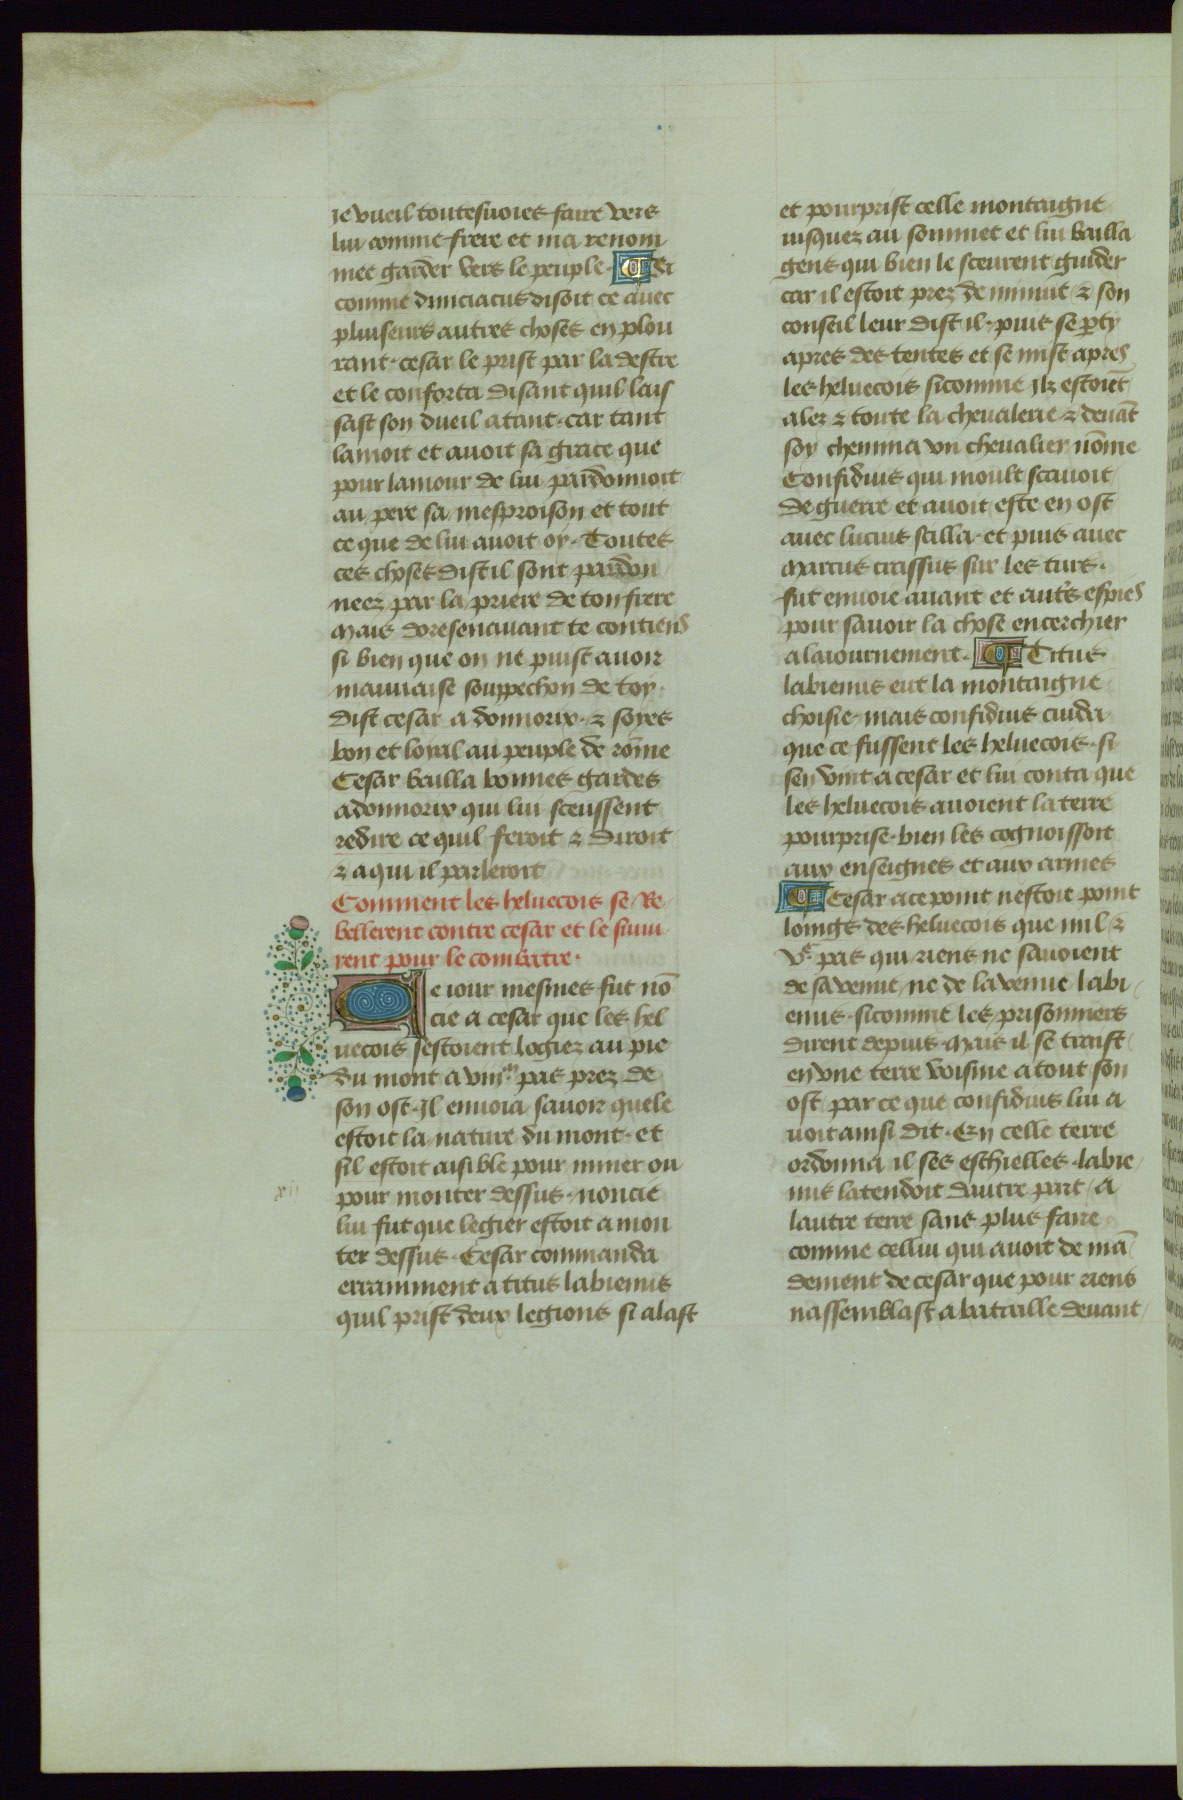 Je vueil toutesuoies faire vers
lui comme frere et ma renom
mee garder vers le peuple · Si
comme diuiciacus disoit ce auec
pluiseurs autres choses en plou
rant · cesar le prist par la destre
et le conforta disant quil lais
sast son dueil atant · car tant
lamoit et auoit sa grace que
pour lamour de lui pardonnoit
au pere sa mesproison et tout
ce que de lui auoit oy · Toutes
ces choses dist il sont pardon
neez par la priere de ton frere
Mais doresenauant te contiens
si bien que on ne puist auoir
mauuaise souppechon de toy ·
dist cesar a donnorix · ⁊ soyes
bon et loyal au peuple de rōme
Cesar bailla bonnes gardes
adonnorix qui lui sceussent
redire ce quil feroit ⁊ diroit
⁊ a qui il parleroit
Comment les heluecois se Re
bellerent contre cesar et le siuui
rent pour le combatre ·
Ce iour mesmes fut nō
cie a cesar que les hel
uecois sestoient logiez au pie
du mont a viiiᵐ pas prez de
son ost · Il enuoia sauoir quele
estoit la nature du mont · et
sil estoit aisible pour miner ou
pour monter dessus · noncie
lui fut que legier estoit a mon
ter dessus · Cesar commanda
erramment a titus labienus
quil prist deux legions si alast
xii
et pourprist celle montaigne
iusquez au sommet et lui bailla
gens qui bien le sceurent guider
car il estoit prez de minuit ⁊ son
conseil leur dist il · puis se pty
apres des tentes et se mist apres
les heluecois sicomme Ilz estoiēt
alez ⁊ toute la cheualerie ⁊ deuāt
soy chemina vn cheualier nōme
Confidius qui moult scauoit
de guerre et auoit este en ost
auec lucius scilla · et puis auec
Marcus crassus sur les turs ·
fut enuoie auant et autrs espies
pour sauoir la chose encerchier
alaiournement · Titus
labienus eut la montaigne
choisie · mais confidius cuida
que ce fussent les heluecois · si
sen vint a cesar et lui conta que
les heluecois auoient la terre
pourprise · bien les cognoissoit
aux enseignes et aux armes
Cesar a ce point nestoit point
loings des heluecois que mil ⁊
vᶜ pas qui riens ne sauoient
de sa venue / ne de la venue labi
enus · sicomme les prisonniers
dirent depuis · Mais il se traist
en vne terre voisine a tout son
ost par ce que confidius lui a
uoit ainsi dit · En celle terre
ordonna il ses eschielles · labie
nus latendoit dautre part / a
lautre terre sans plus faire
comme cellui qui auoit de mā
dement de cesar que pour riens
nassemblast a bataille deuant